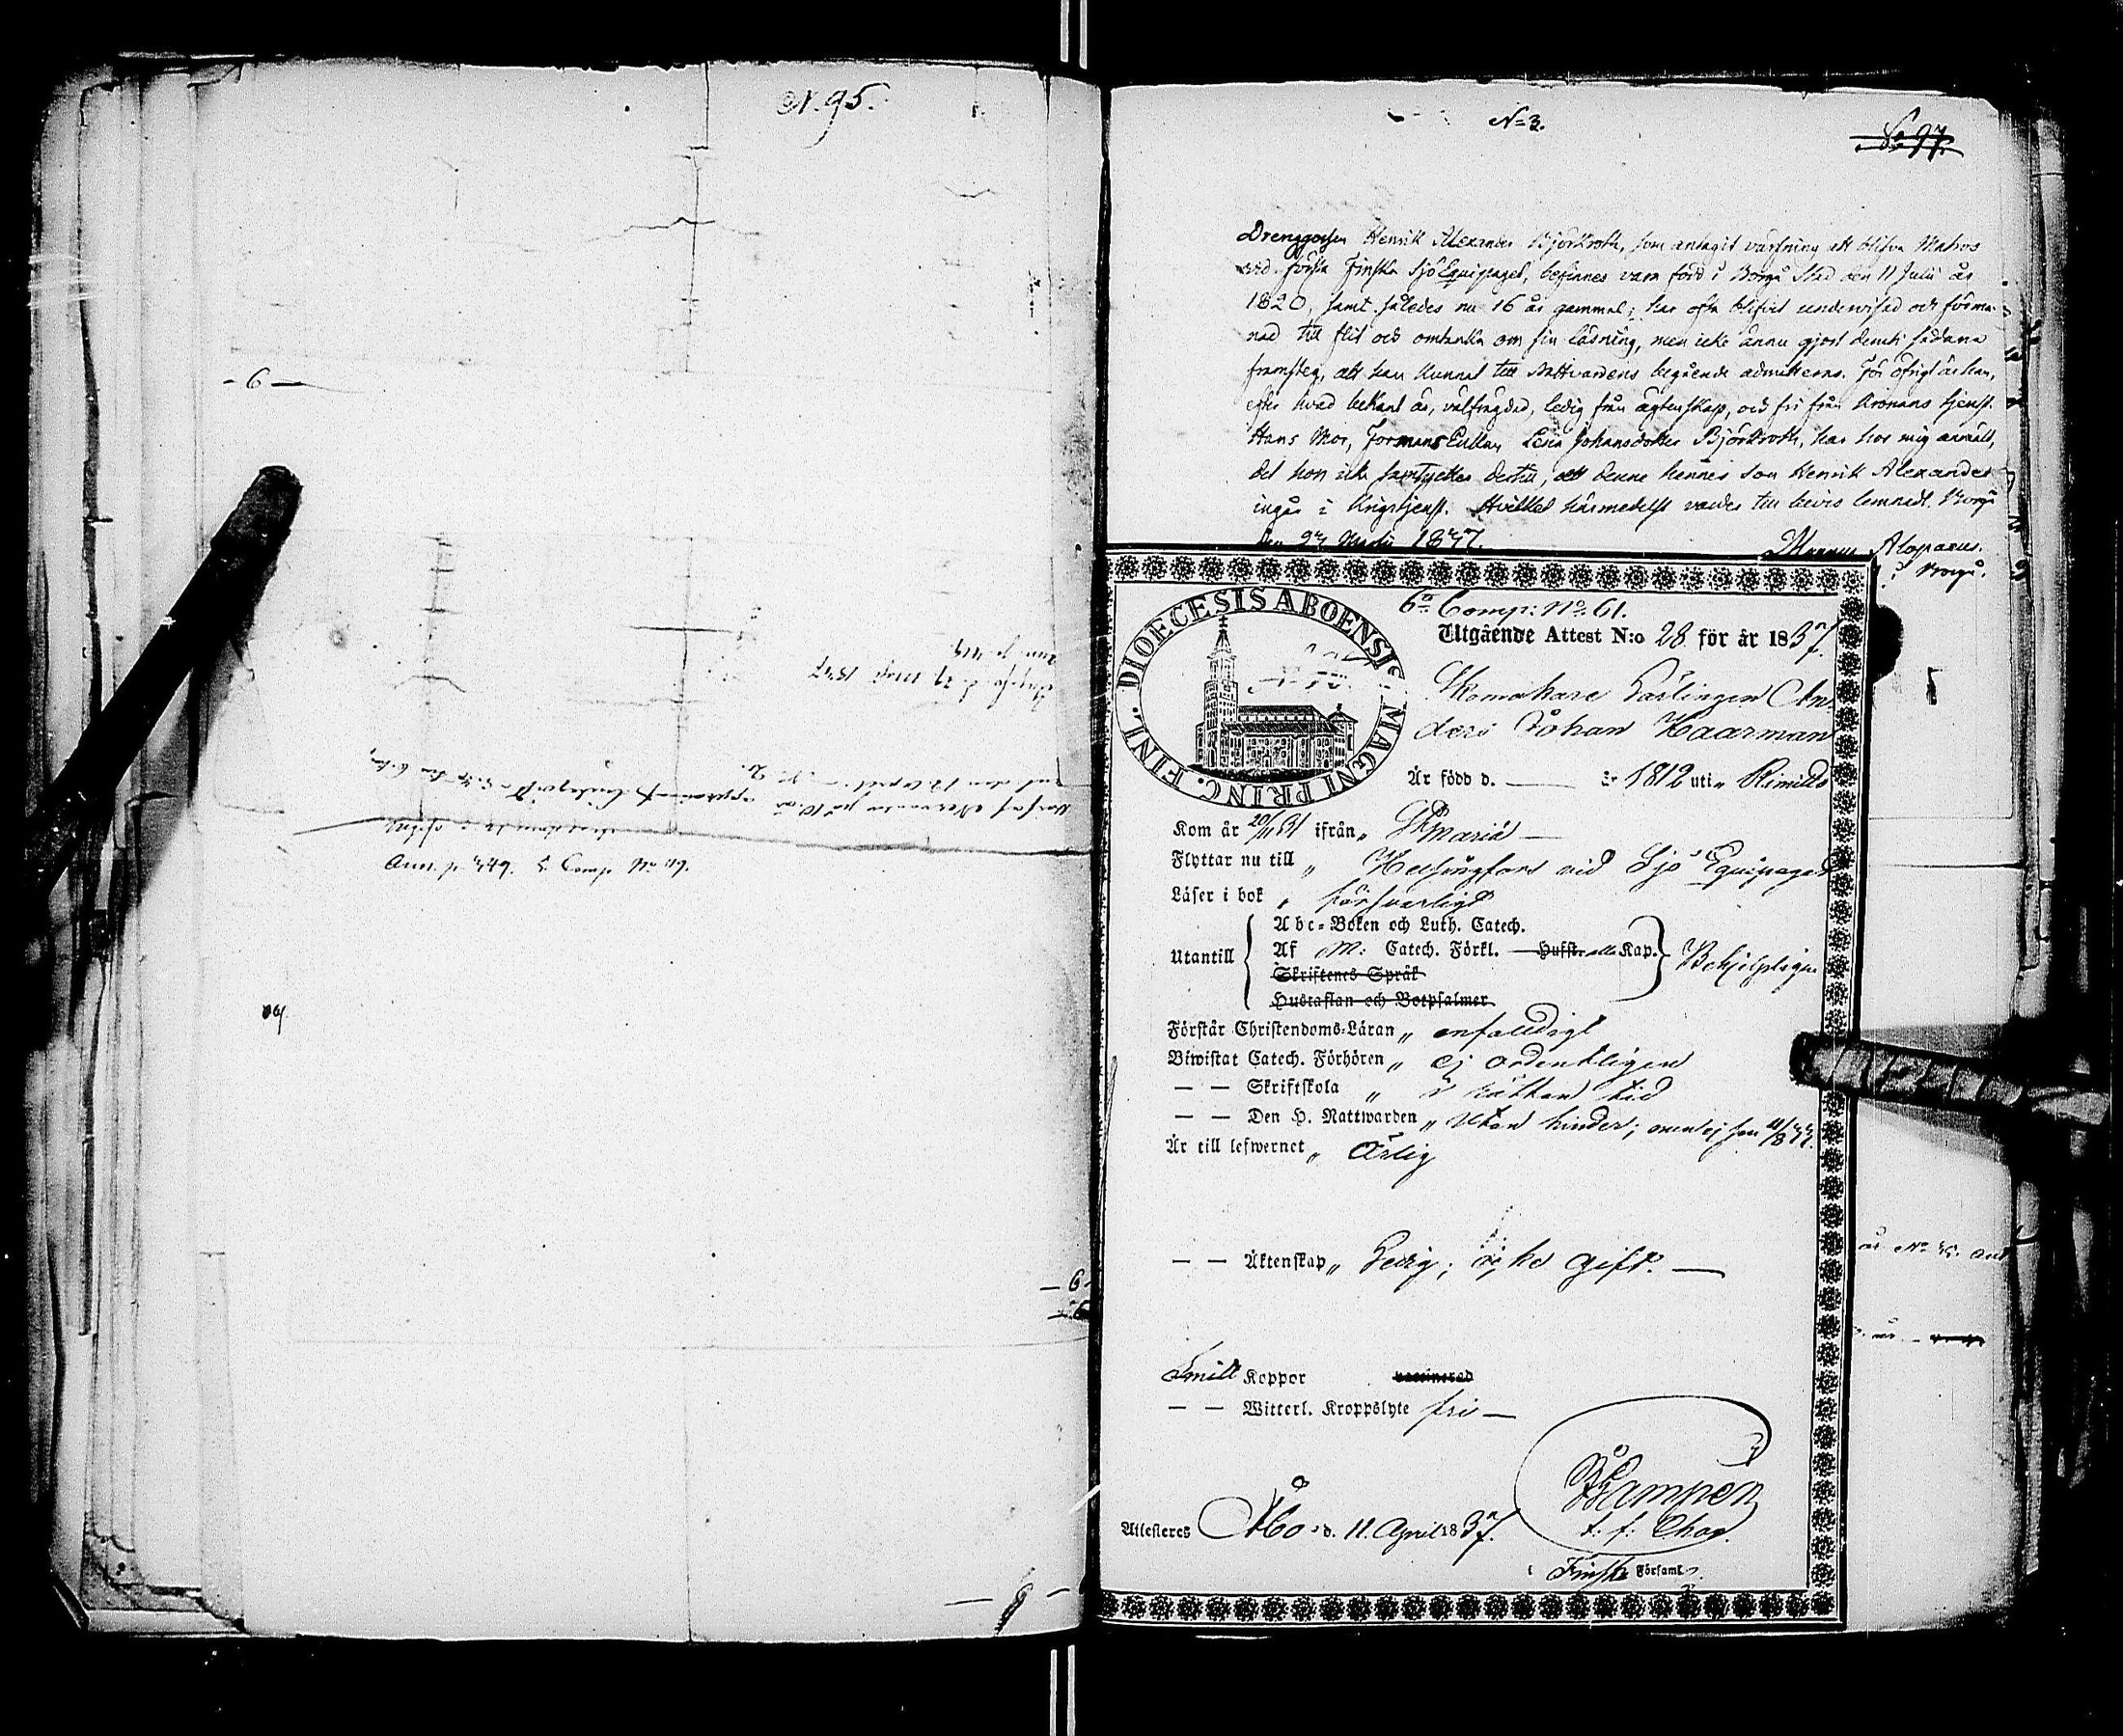 N. 95.
- 6 -
Ann. p. 449. 5 Comp. No 119.
- 6 -
N=3.
No 97.
Drenggossen Henrik Alexander Björkroth, som antagit värfning att blifva Matros
vid första Finska Sjö Equipaget, befinnes vara född i Borgå Stad den 11 Julii år
1820, samt således nu 16 år gammal; har ofta blifvit undervisad och förma-
nad till flit och omtanka om sin läsning, men icke ännu gjort deruti sådana
framsteg, att han kunnat till Nattvardens begående admitteras. För öfrigt är han,
efter hvad bekant är, välfrägdad, ledig från ägtenskap, och fri från Kronans tjenst.
Hans Mor, Formans Enkan Lena Johansdotter Björkroth, har hos mig anmält,
det hon icke samtycker dertill, att denne hennes son Henrik Alexander
ingår i Krigstjenst. Hvilket härmedelst varder till bevis lemnadt. Borgå
den 27 Martii 1837.
Magnus Alopaeus.
i Borgå.
6te Comp: No 61.
DIOECESIS ABOENSIS MAGNI PRINC. FINL.
Utgående Attest N:o 28 för år 1837.
Skomakare Lärlingen An-
ders Johan Haarman
Är född d. — år 1812 uti „ Rimitto
Kom år 20/11 31 ifrån „ St Mariæ —
Flyttar nu till „ Helsingfors vid Sjö Equipaget
Läser i bok „ försvarligt
Utantill
Abc-Boken och Luth. Catech.
Af M: Catech. Förkl. — Hufst. alla Kap.
Skriftenes Språk
Hustaflan och Botpsalmer
Behjelpligen
Förstår Christendoms-Läran „ enfaldigt
Biwistat Catech. Förhören „ ej ordentligen
— — Skriftskola „ i rättan tid
— — Den H. Nattwarden „ Utan hinder; men ej sen
Är till lefwernet „ Ärlig
— — Äktenskap „ Ledig; icke gift. —
Smitt Koppor vaccinerad
— — Witterl. Kroppslyte fri —
Attesteres Åbo d. 11 April 1837.
Lampén
t. f. Chap.
i Finska Församl.